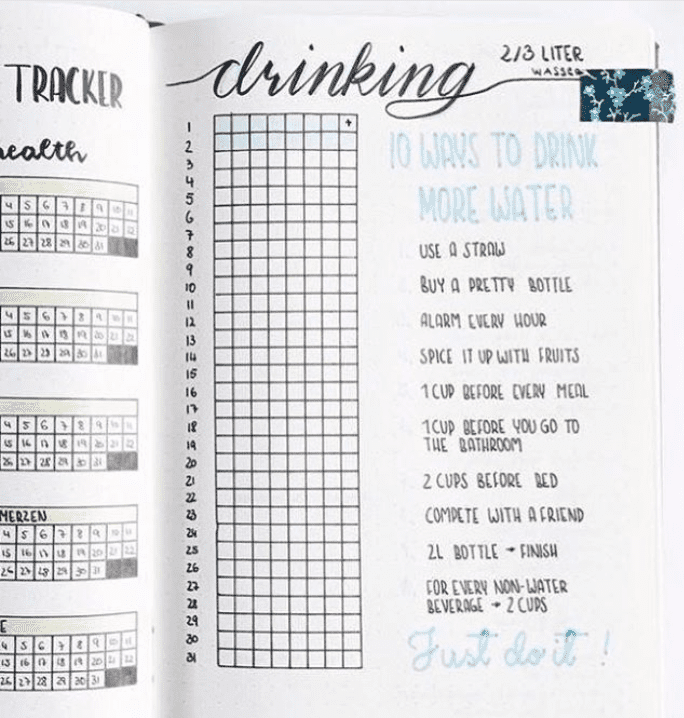 TRACKER
ealth
4 5 6 7 8 9 10 11
15 16 17 18 19 20 21 22
26 27 28 29 30 31
4 5 6 7 8 9 10 11
15 16 17 18 19 20 21 22
26 27 28 29 30 31
4 5 6 7 8 9 10 11
15 16 17 18 19 20 21 22
26 27 28 29 30 31
MERZEN
4 5 6 7 8 9 10 11
15 16 17 18 19 20 21 22
26 27 28 29 30 31
E
4 5 6 7 8 9 10 11
15 16 17 18 19 20 21 22
26 27 28 29 30 31
drinking
2/3 LITER
WASSER
1
+
2
3
4
5
6
7
8
9
10
11
12
13
14
15
16
17
18
19
20
21
22
23
24
25
26
27
28
29
30
31
10 WAYS TO DRINK
MORE WATER
USE A STRAW
BUY A PRETTY BOTTLE
ALARM EVERY HOUR
SPICE IT UP WITH FRUITS
1 CUP BEFORE EVERY MEAL
1 CUP BEFORE YOU GO TO
THE BATHROOM
2 CUPS BEFORE BED
COMPETE WITH A FRIEND
2L BOTTLE → FINISH
FOR EVERY NON-WATER
BEVERAGE → 2 CUPS
Just do it !